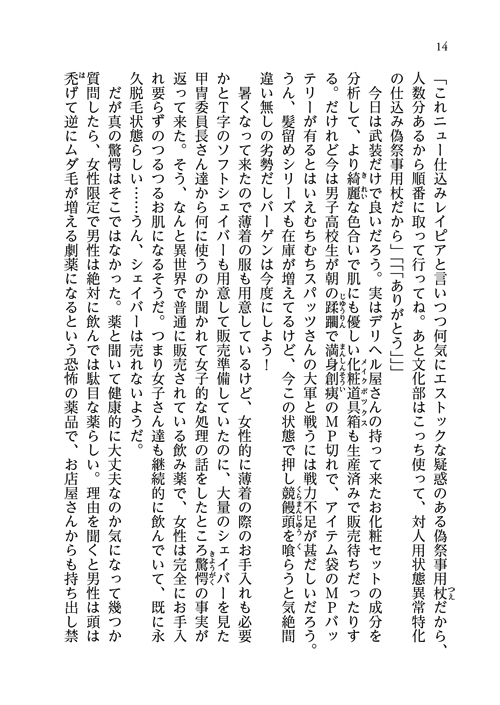 14
「これニュー仕込みレイピアと言いつつ何気にエストックな疑惑のある偽祭事用杖だから、
人数分あるから順番に取って行ってね。あと文化部はこっち使って、対人用状態異常特化
の仕込み偽祭事用杖だから」「「「ありがとう」」」
　今日は武装だけで良いだろう。実はデリヘル屋さんの持って来たお化粧セットの成分を
分析して、より綺麗な色合いで肌にも優しい化粧道具箱も生産済みで販売待ちだったりす
る。だけれど今は男子高校生が朝の蹂躙で満身創痍のMP切れで、アイテム袋のMPバッ
テリーが有るとはいえむちむちスパッツさんの大軍と戦うには戦力不足が甚だしいだろう。
うん、髪留めシリーズも在庫が増えてるけど、今この状態で押し競饅頭を喰らうと気絶間
違い無しの劣勢だしバーゲンは今度にしよう！
　暑くなって来たので薄着の服も用意しているけど、女性的に薄着の際のお手入れも必要
かとT字のソフトシェイバーも用意して販売準備していたのに、大量のシェイバーを見た
甲冑委員長さん達から何に使うのか聞かれて女子的な処理の話をしたところ驚愕の事実が
返って来た。そう、なんと異世界で普通に販売されている飲み薬で、女性は完全にお手入
れ要らずのつるつるお肌になるそうだ。つまり女子さん達も継続的に飲んでいて、既に永
久脱毛状態らしい……うん、シェイバーは売れないようだ。
　だが真の驚愕はそこではなかった。薬と聞いて健康的に大丈夫なのか気になって幾つか
質問したら、女性限定で男性は絶対に飲んでは駄目な薬らしい。理由を聞くと男性は頭は
禿げて逆にムダ毛が増える劇薬になるという恐怖の薬品で、お店屋さんからも持ち出し禁